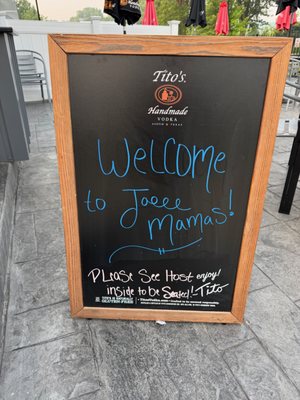 Tito's
Handmade
VODKA
AUSTIN ★ TEXAS
Welcome
to Jaeee
mamas!
Please See Host enjoy!
inside to be Seated! -Tito